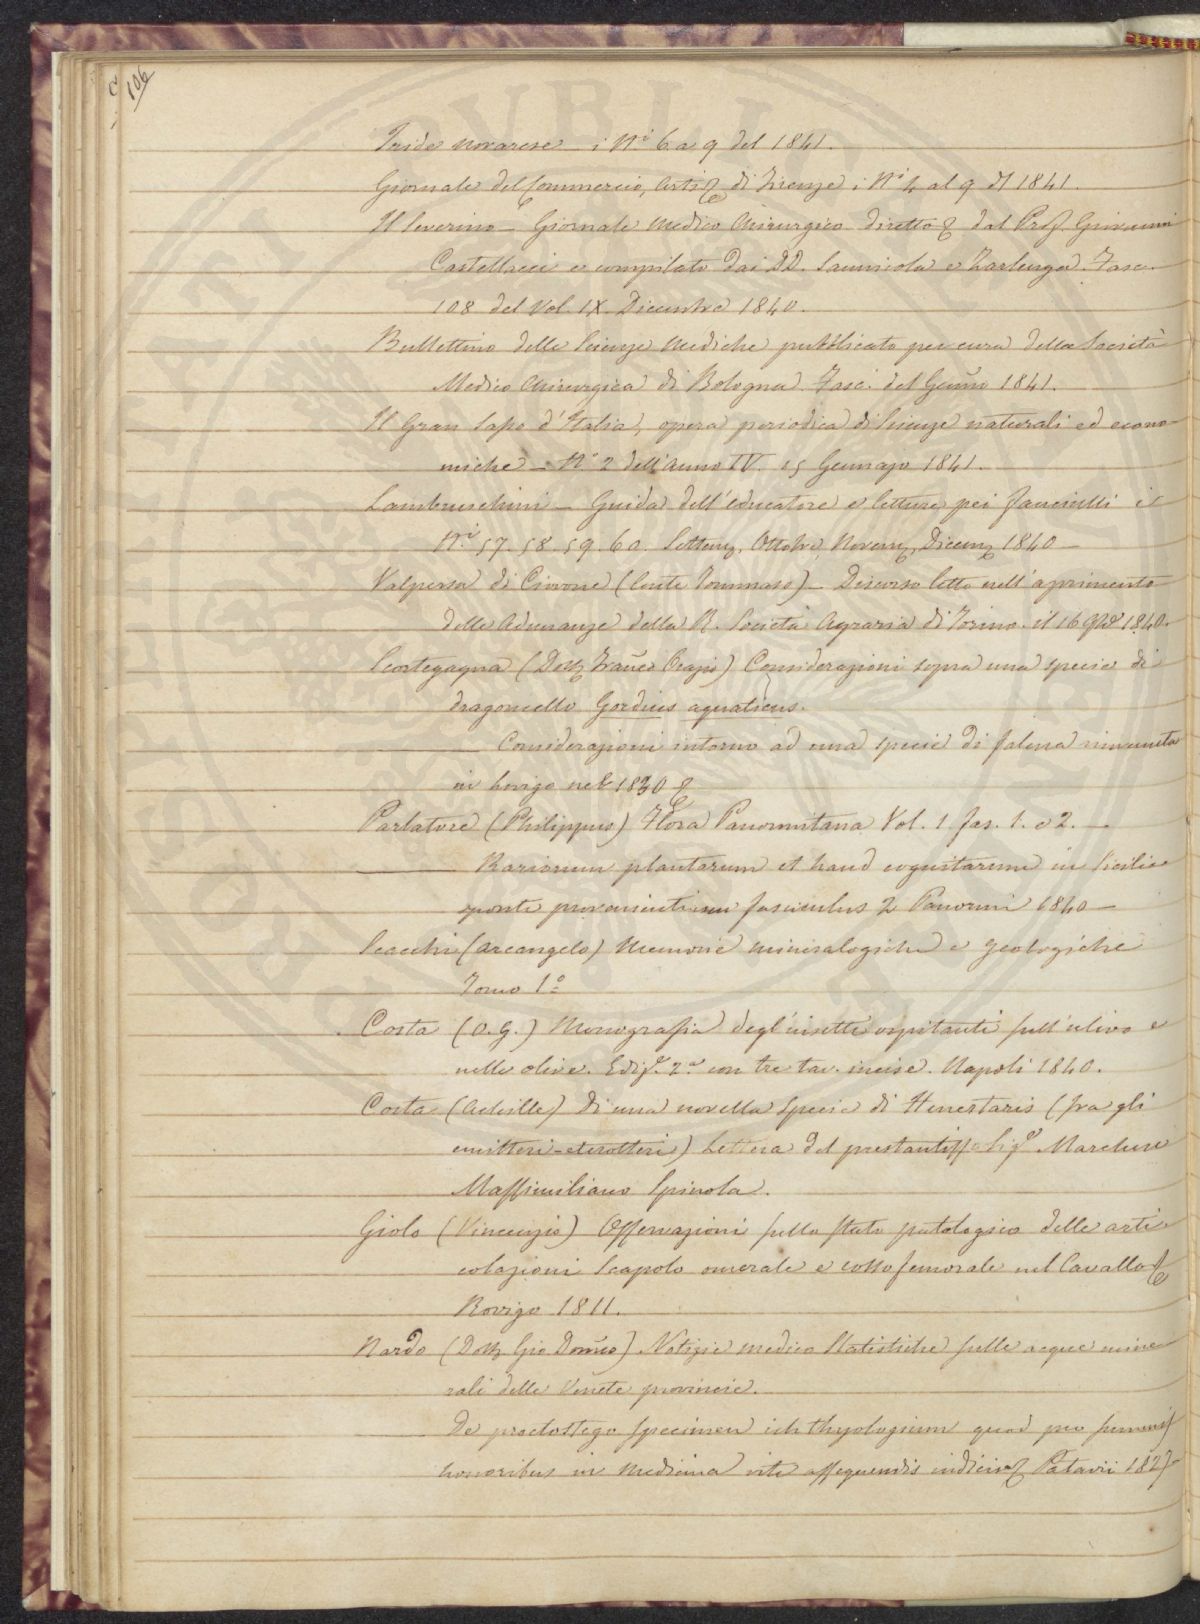 C 106
Iride novarese i N.i 6 a 9 del 1841.
Giornale del Commercio, Arti & di Firenze i N.i 4 al 9 dl 1841.
Il Severino – Giornale medico chirurgico diretto & dal Prof. Giovanni
Castellacci e compilato dai DD. Sannicola e Zarlenga. Fasc.
108 del Vol. IX. Dicembre 1840.
Bullettino delle Scienze Mediche pubblicato per cura della Società
Medico Chirurgica di Bologna. Fasc. del Genno 1841.
Il Gran Sasso d'Italia, opera periodica di Scienze naturali ed econo
miche – N.o 2 dell'Anno IV. 15 Gennajo 1841.
Lambruschini – Guida dell'educatore e letture pei fanciulli i
N.i 57. 58. 59. 60. Settem, Ottobre, Novem, Dicem 1840 –
Valperga di Civrone (Conte Tommaso) – Discorso letto nell'aprimento
delle Adunanze della R. Società Agraria di Torino il 16 9bre 1840.
Scortegagna (Dott Franco Orazio) Considerazioni sopra una specie di
dragoncello Gordius aquaticus.
——— Considerazioni intorno ad una specie di falena rinvenuta
in Lonigo nel 1830 &
Parlatore (Philippus) Flora Panormitana Vol. 1 fas. 1. e 2. –
——— Rariorum plantarum et haud cognitarum in Sicilia
sponte provenientium fasciculus 2 Panormi 1840 –
Scacchi (Arcangelo) Memorie mineralogiche e geologiche
Tomo 1o
Costa (O. G.) Monografia degl'insetti ospitanti sull'ulivo e
nelle olive. Ediz.e 2.a con tre tav. incise. Napoli 1840.
Costa (Achille) Di una novella Specie di Henestaris (fra gli
emitteri-eterotteri) Lettera del prestantiss Sigr Marchese
Massimiliano Spinola.
Giolo (Vincenzio) Osservazioni sullo stato patologico delle arti
colazioni Scapolo omerale e cosso femorale nel Cavallo &
Rovigo 1811.
Nardo (Dott Gio Domco) Notizie medico Statistiche sulle acque mine
rali delle Venete provincie.
De proctostego specimen ichthyologicum quod pro summis
honoribus in Medicina rite assequendis Patavii 1827